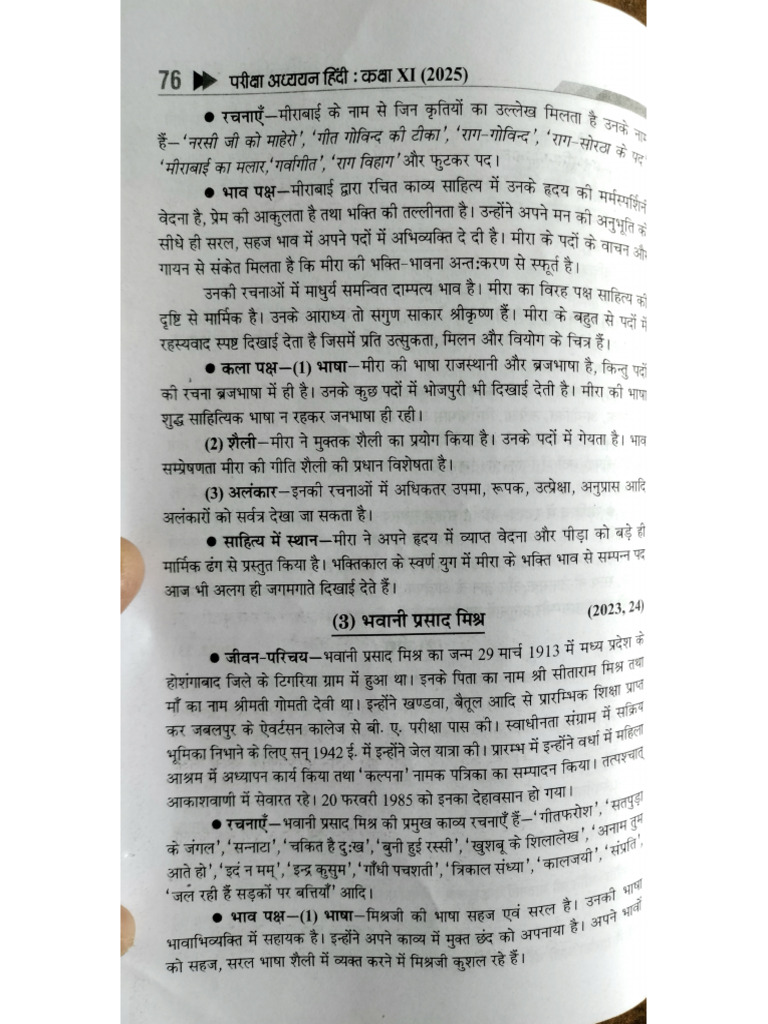 76 परीक्षा अध्ययन हिंदी : कक्षा XI (2025)
● रचनाएँ–मीराबाई के नाम से जिन कृतियों का उल्लेख मिलता है उनके नाम
हैं–'नरसी जी को माहेरो', 'गीत गोविन्द की टीका', 'राग-गोविन्द', 'राग-सोरठा के पद'
'मीराबाई का मलार, 'गर्वागीत', 'राग विहाग' और फुटकर पद।
● भाव पक्ष–मीराबाई द्वारा रचित काव्य साहित्य में उनके हृदय की मर्मस्पर्शिनी
वेदना है, प्रेम की आकुलता है तथा भक्ति की तल्लीनता है। उन्होंने अपने मन की अनुभूति को
सीधे ही सरल, सहज भाव में अपने पदों में अभिव्यक्ति दे दी है। मीरा के पदों के वाचन और
गायन से संकेत मिलता है कि मीरा की भक्ति-भावना अन्त:करण से स्फूर्त है।
उनकी रचनाओं में माधुर्य समन्वित दाम्पत्य भाव है। मीरा का विरह पक्ष साहित्य की
दृष्टि से मार्मिक है। उनके आराध्य तो सगुण साकार श्रीकृष्ण हैं। मीरा के बहुत से पदों में
रहस्यवाद स्पष्ट दिखाई देता है जिसमें प्रति उत्सुकता, मिलन और वियोग के चित्र हैं।
● कला पक्ष–(1) भाषा–मीरा की भाषा राजस्थानी और ब्रजभाषा है, किन्तु पदों
की रचना ब्रजभाषा में ही है। उनके कुछ पदों में भोजपुरी भी दिखाई देती है। मीरा की भाषा
शुद्ध साहित्यिक भाषा न रहकर जनभाषा ही रही।
(2) शैली–मीरा ने मुक्तक शैली का प्रयोग किया है। उनके पदों में गेयता है। भाव
सम्प्रेषणता मीरा की गीति शैली की प्रधान विशेषता है।
(3) अलंकार–इनकी रचनाओं में अधिकतर उपमा, रूपक, उत्प्रेक्षा, अनुप्रास आदि
अलंकारों को सर्वत्र देखा जा सकता है।
● साहित्य में स्थान–मीरा ने अपने हृदय में व्याप्त वेदना और पीड़ा को बड़े ही
मार्मिक ढंग से प्रस्तुत किया है। भक्तिकाल के स्वर्ण युग में मीरा के भक्ति भाव से सम्पन्न पद
आज भी अलग ही जगमगाते दिखाई देते हैं।
(3) भवानी प्रसाद मिश्र (2023, 24)
● जीवन-परिचय–भवानी प्रसाद मिश्र का जन्म 29 मार्च 1913 में मध्य प्रदेश के
होशंगाबाद जिले के टिगरिया ग्राम में हुआ था। इनके पिता का नाम श्री सीताराम मिश्र तथा
माँ का नाम श्रीमती गोमती देवी था। इन्होंने खण्डवा, बैतूल आदि से प्रारम्भिक शिक्षा प्राप्त
कर जबलपुर के ऐवर्टसन कालेज से बी. ए. परीक्षा पास की। स्वाधीनता संग्राम में सक्रिय
भूमिका निभाने के लिए सन् 1942 ई. में इन्होंने जेल यात्रा की। प्रारम्भ में इन्होंने वर्धा में महिला
आश्रम में अध्यापन कार्य किया तथा 'कल्पना' नामक पत्रिका का सम्पादन किया। तत्पश्चात्
आकाशवाणी में सेवारत रहे। 20 फरवरी 1985 को इनका देहावसान हो गया।
● रचनाएँ–भवानी प्रसाद मिश्र की प्रमुख काव्य रचनाएँ हैं–'गीतफरोश', 'सतपुड़ा
के जंगल', 'सन्नाटा', 'चकित है दु:ख', 'बुनी हुई रस्सी', 'खुशबू के शिलालेख', 'अनाम तुम
आते हो', 'इदं न मम्', 'इन्द्र कुसुम', 'गाँधी पचशती', 'त्रिकाल संध्या', 'कालजयी', 'संप्रति',
'जल रही हैं सड़कों पर बत्तियाँ' आदि।
● भाव पक्ष–(1) भाषा–मिश्रजी की भाषा सहज एवं सरल है। उनकी भाषा
भावाभिव्यक्ति में सहायक है। इन्होंने अपने काव्य में मुक्त छंद को अपनाया है। अपने भावों
को सहज, सरल भाषा शैली में व्यक्त करने में मिश्रजी कुशल रहे हैं।